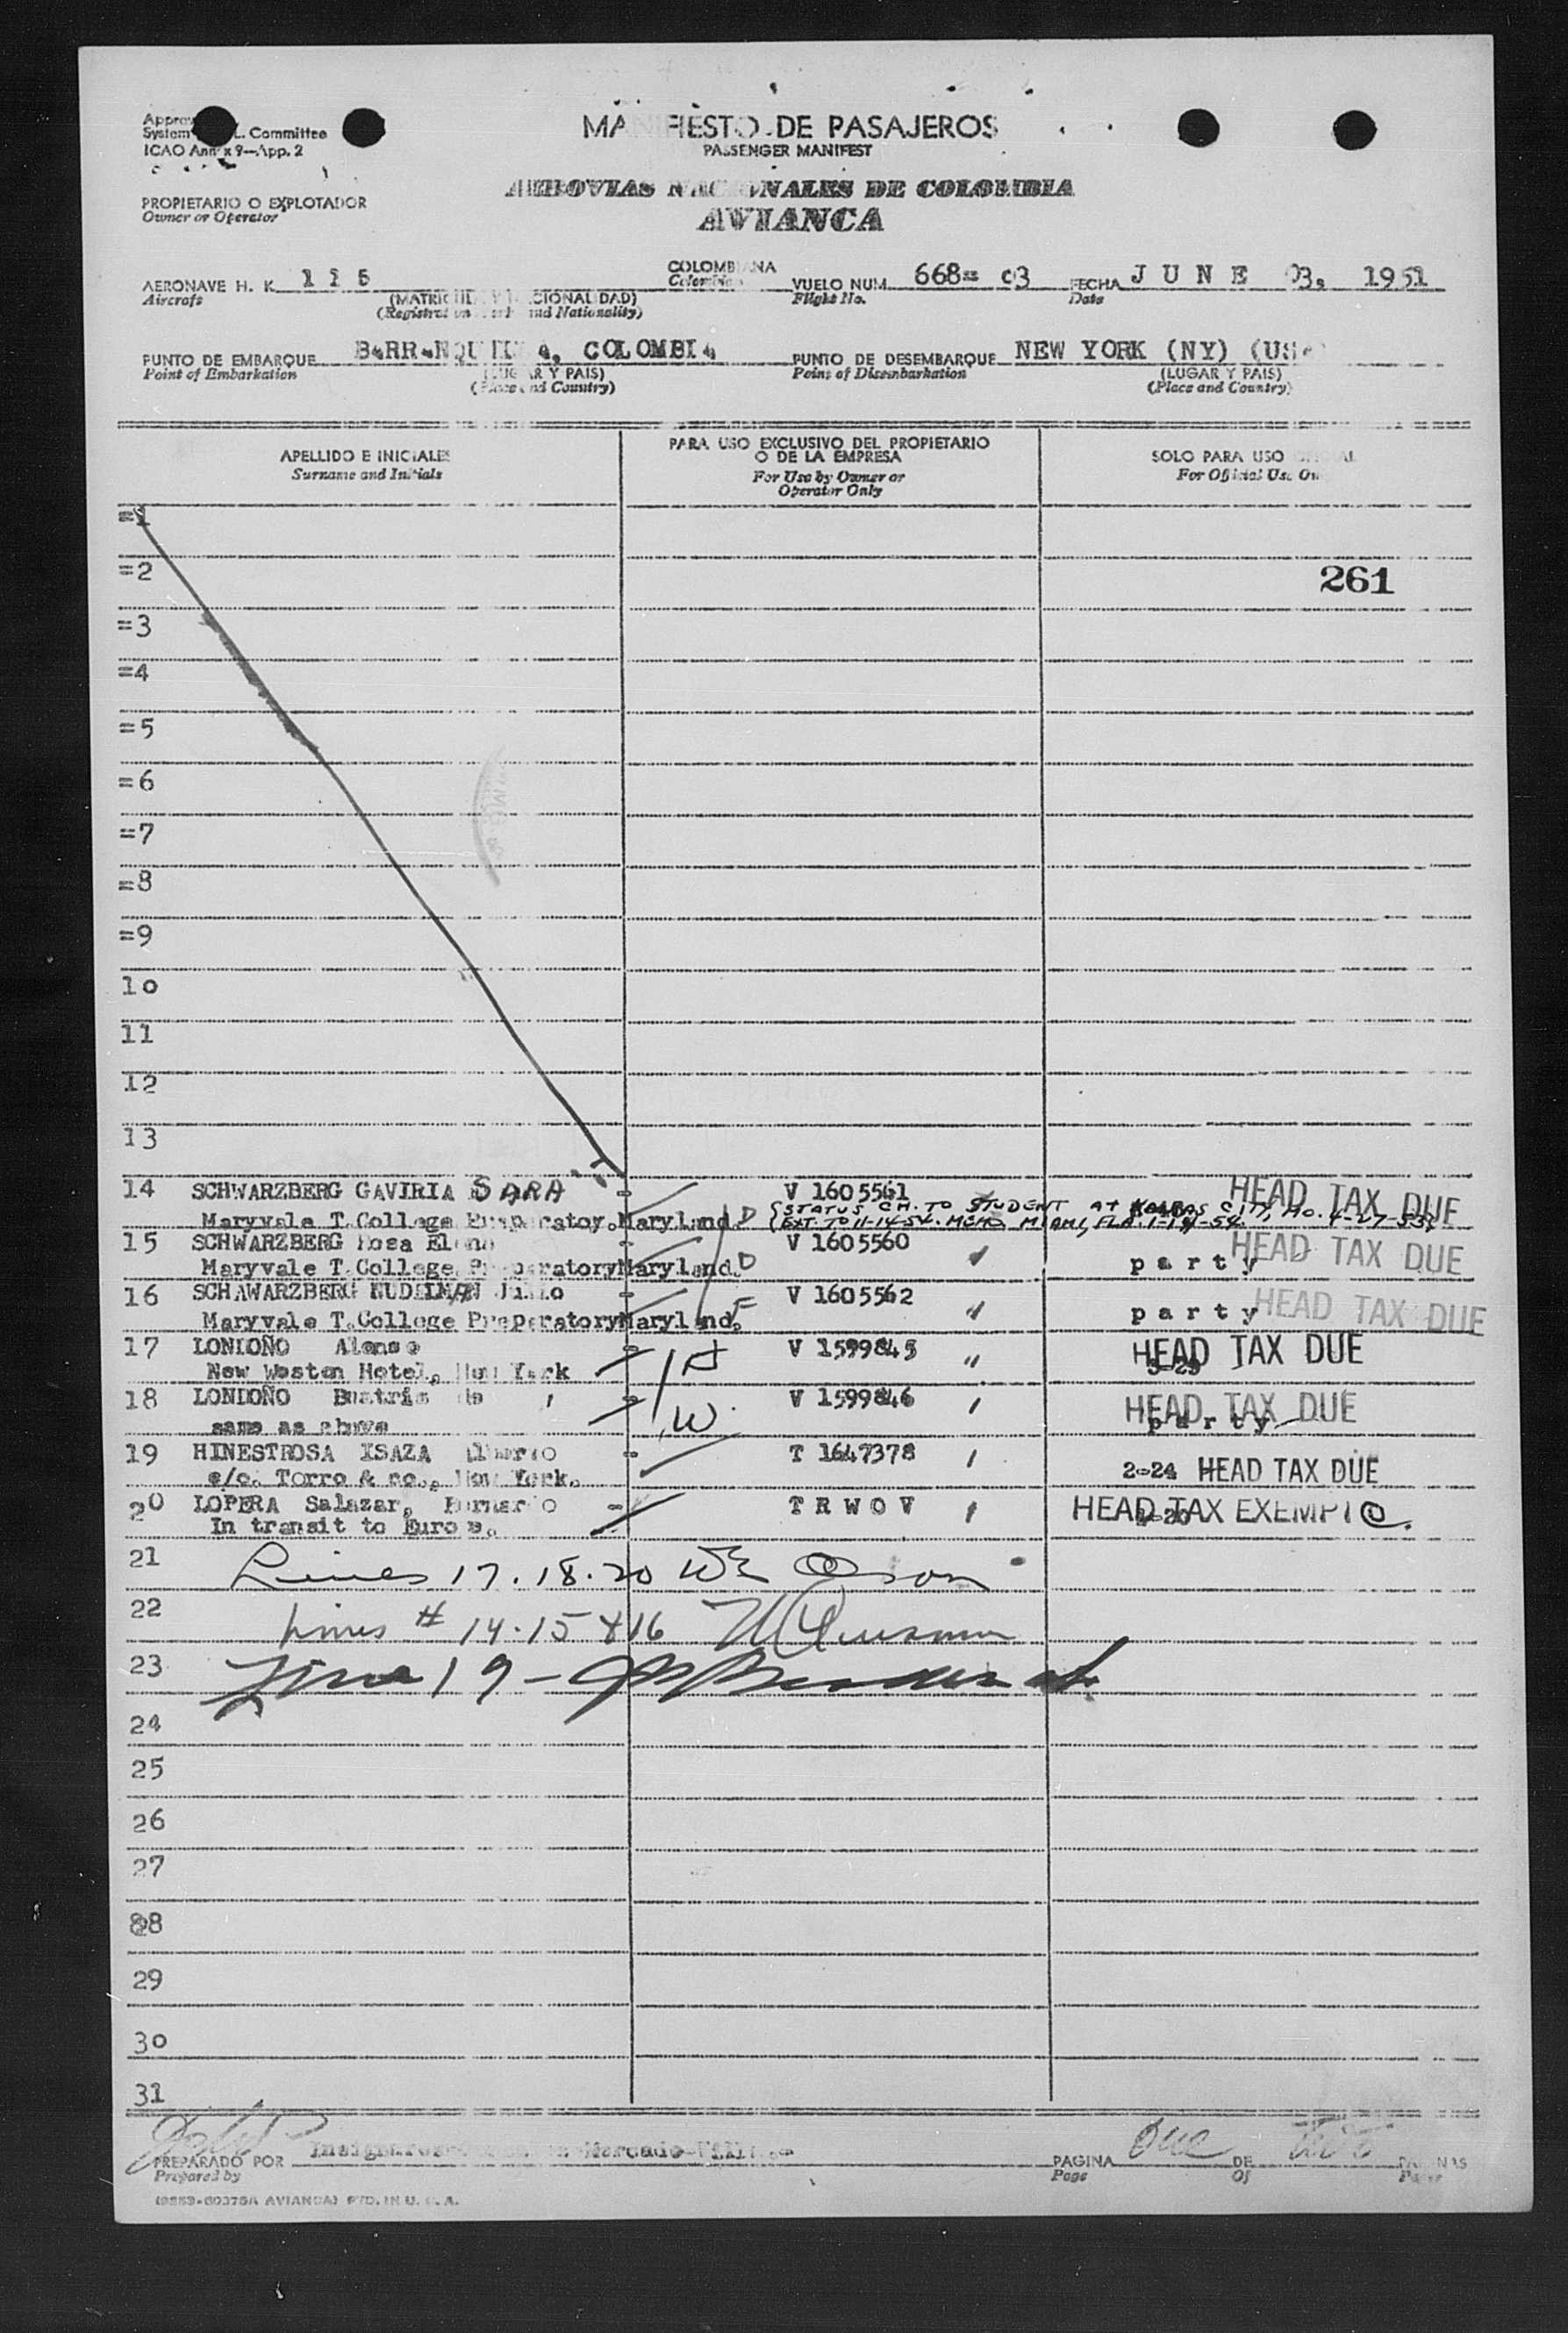 System L. Committee
ICAO Annex 9—App. 2
MANIFIESTO DE PASAJEROS
PASSENGER MANIFEST
AEROVIAS NACIONALES DE COLOMBIA
AVIANCA
PROPIETARIO O EXPLOTADOR
Owner or Operator
AERONAVE H. K. COLOMBIANA VUELO NUM. 668= 03 FECHA JUNE 03, 1951
Aircraft (MATRICULA Y NACIONALIDAD) Flight No. Date
(Registration and Nationality)
PUNTO DE EMBARQUE BARRANQUILLA, COLOMBIA PUNTO DE DESEMBARQUE NEW YORK (NY) (USA)
Point of Embarkation (LUGAR Y PAIS) Point of Disembarkation (LUGAR Y PAIS)
(Place and Country) (Place and Country)
APELLIDO E INICIALES PARA USO EXCLUSIVO DEL PROPIETARIO O DE LA EMPRESA SOLO PARA USO OFICIAL
Surname and Initials For Use by Owner or Operator Only For Official Use Only
=1
=2 261
=3
=4
=5
=6
=7
=8
=9
10
11
12
13
14 SCHWARZBERG GAVIRIA SARA - V 1605561 HEAD TAX DUE
Maryvale T.College Preparatoy.Maryland. D (STATUS CH. TO STUDENT AT KANSAS CITY, MO. 4-27-53)
(EXT. TO 11-14-54. MEMO MIAMI, FLA. 1-19-54.
15 SCHWARZBERG Rosa Elena - V 1605560 HEAD TAX DUE
Maryvale T.College PreparatoryMaryland. D " party
16 SCHAWARZBERG NUDELMAN Julio - V 1605562
Maryvale T.College PreparatoryMaryland. F " party HEAD TAX DUE
17 LONDOÑO Alonso - H V 1599845 " HEAD TAX DUE
New Weston Hotel, New York 3-29
18 LONDOÑO Beatris de - W V 1599846 HEAD TAX DUE
same as above party
19 HINESTROSA ISAZA Alberto - T 1647378
c/o. Torro & co., New York. 2-24 HEAD TAX DUE
20 LOPERA Salazar, Bernardo - TRWOV HEAD TAX EXEMPT
In transit to Europe.
21 Lines 17.18.20
22 Lines # 14.15 & 16
23 Line 19 -
24
25
26
27
28
29
30
31
PREPARADO POR PAGINA One DE PAGINAS
Prepared by Page Of Pages